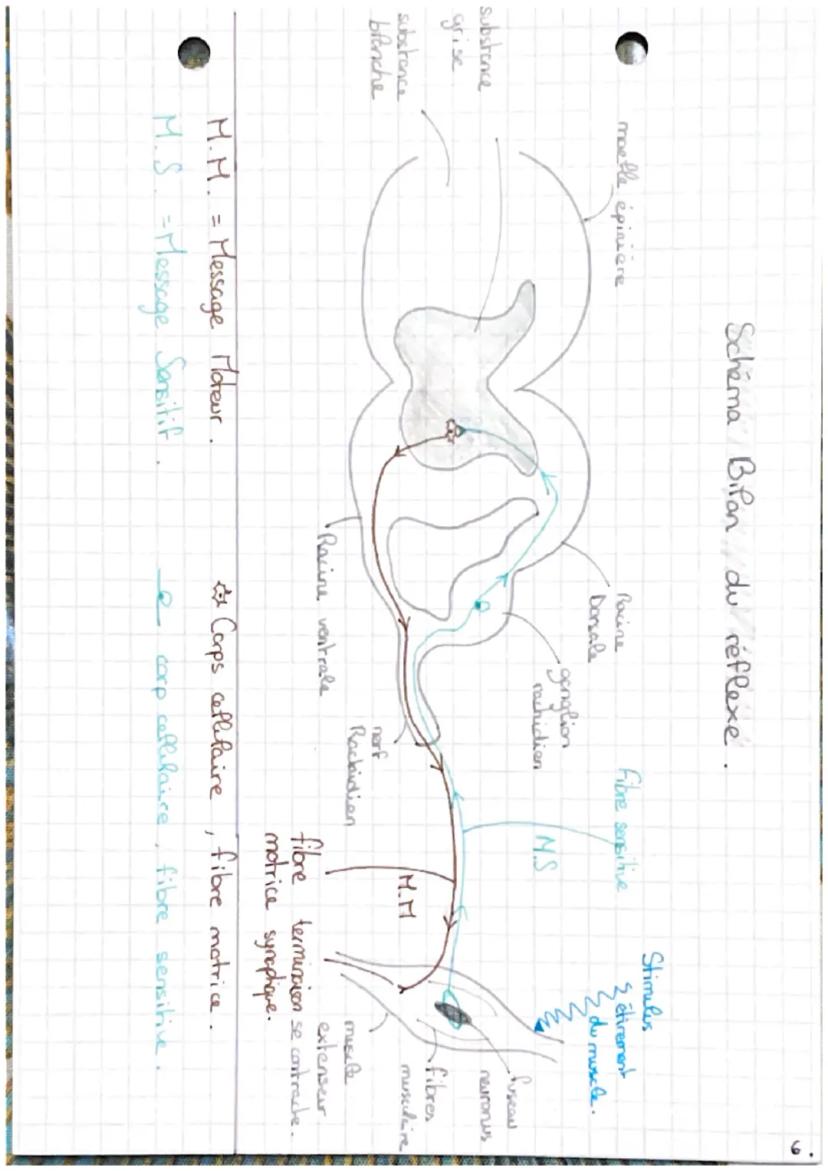 6.
Schéma Bilan du réflexe.
moelle épinière
substance
grise
substance
blanche
Racine
Dorsale
ganglion
rachidien
Fibre sensitive
M.S
Stimulus
étirement
du muscle.
fuseau
neuronus
fibres
musculaire
muscle
extenseur
se contracte.
Racine ventrale
nerf
Rachidien
M.M
fibre terminaison
motrice synaptique.
M.M. = Message Moteur.
Corps cellulaire, fibre motrice.
M.S. = Message Sensitif.
corp cellulaire, fibre sensitive.